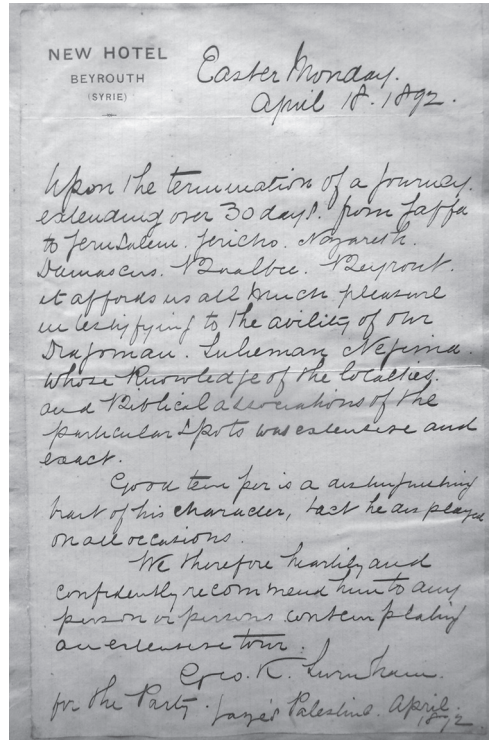 NEW HOTEL
BEYROUTH
(SYRIE)
Easter Monday.
April 18. 1892.
Upon the termination of a journey.
extending over 30 days. from Jaffa
to Jerusalem. Jericho. Nazareth.
Damascus. Baalbec. Beyrout.
it affords us all much pleasure
in testifying to the ability of our
Dragoman. Sulieman
whose knowledge of the localties.
and Biblical associations of the
particular spots was extensive and
exact.
Good temper is a distinguishing
trait of his character, tact he displayed
on all occasions.
We therefore heartily and
confidently recommend him to any
person or persons contemplating
an extensive tour.
Geo. K.
for the Party. Palestine. April.
1892